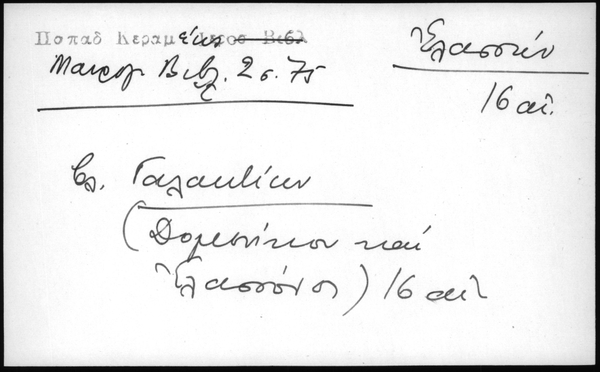 Παπαδ Κεραμέως Ιερος Βιβλ
Μαυρογ Βιβλ. 2 σ. 75
Ἐλασσών
16 αἰ.
βλ. Γαλακτίων
(Δομενίκου καί
Ἐλασσόνος) 16 αἰ